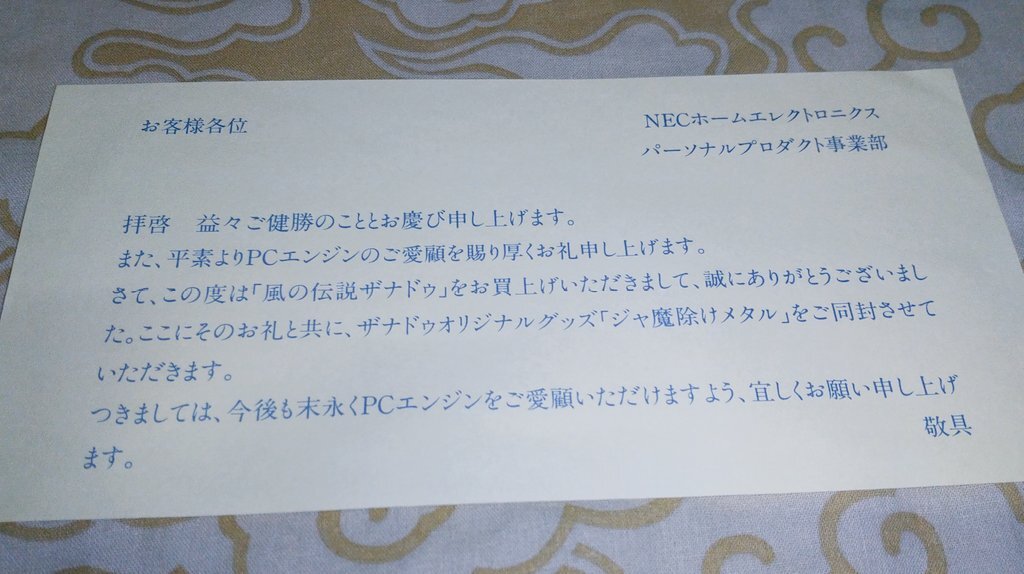 お客様各位
NECホームエレクトロニクス
パーソナルプロダクト事業部
拝啓　益々ご健勝のこととお慶び申し上げます。
また、平素よりPCエンジンのご愛顧を賜り厚くお礼申し上げます。
さて、この度は「風の伝説ザナドゥ」をお買上げいただきまして、誠にありがとうございまし
た。ここにそのお礼と共に、ザナドゥオリジナルグッズ「ジャ魔除けメタル」をご同封させて
いただきます。
つきましては、今後も末永くPCエンジンをご愛顧いただけますよう、宜しくお願い申し上げ
ます。
敬具